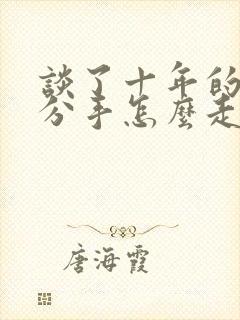 談了十年的
分手怎麼走
唐海霞